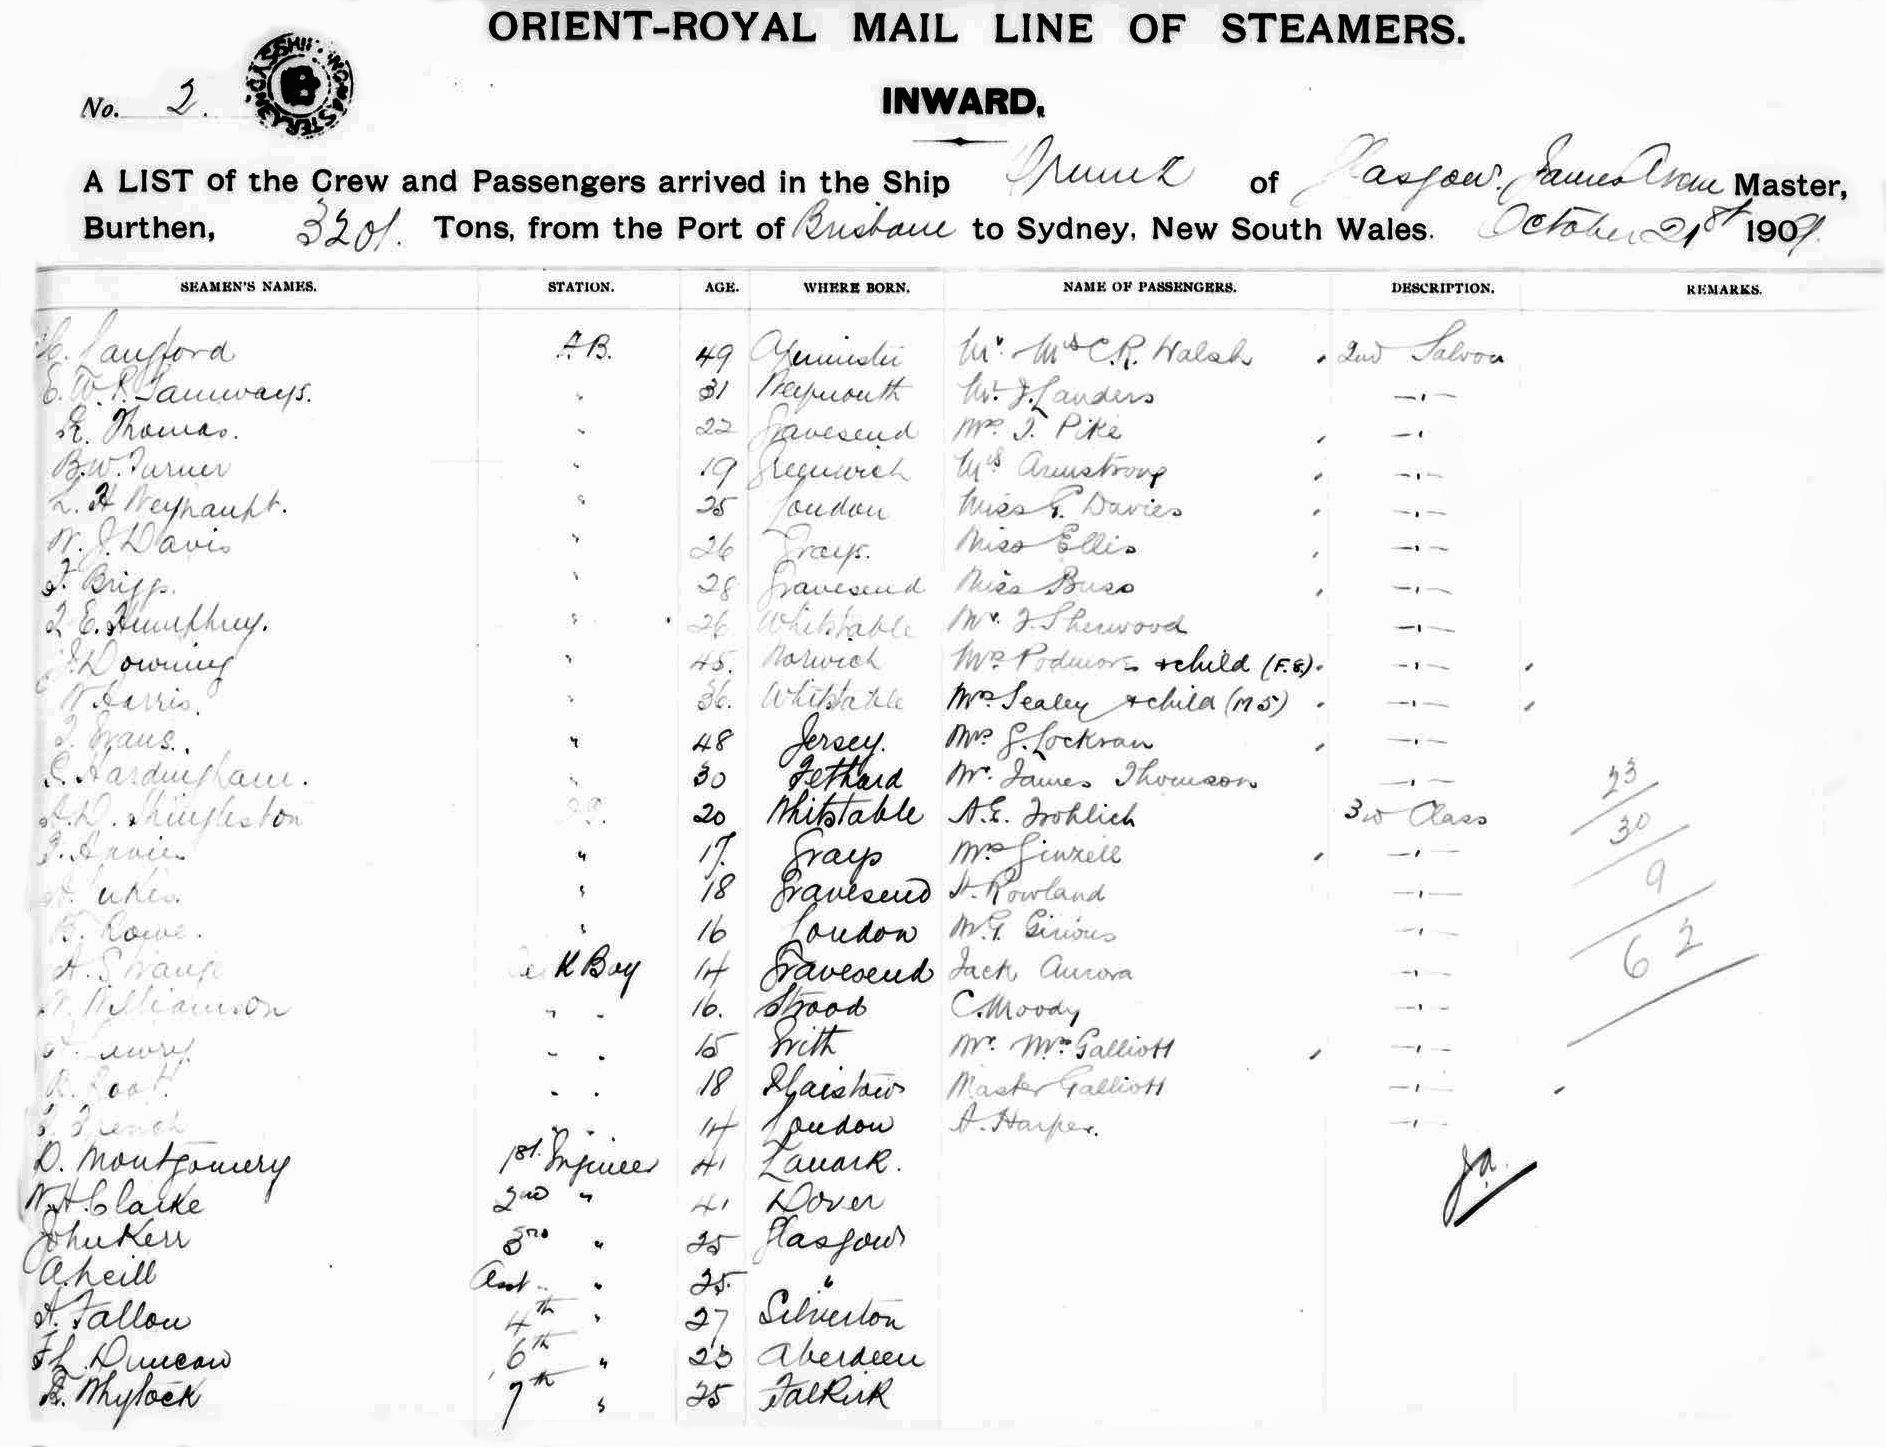 ORIENT-ROYAL MAIL LINE OF STEAMERS.
No. 2.
INWARD.
A LIST of the Crew and Passengers arrived in the Ship of Glasgow. James Master,
Burthen, 3201. Tons, from the Port of Brisbane to Sydney, New South Wales. October 21st 1909.
SEAMEN'S NAMES. STATION. AGE. WHERE BORN. NAME OF PASSENGERS. DESCRIPTION. REMARKS.
Langford A.B. 49 Axminster Mr. Mrs C.R. Walsh 2nd Saloon
E.W.R. 31 Weymouth Mr. J. Landers —"—
E. Thomas. " 22 Gravesend Mrs. T. Pike —"
B.W. Turner " 19 Greenwich Mrs Armstrong —"—
L. H Weyhaupt. " 25 London Miss G. Davies —"—
W. J. Davis " 26 Grays. Miss Ellis —"—
F. Briggs. " 28 Gravesend Miss Buss —"—
E. Humphrey. " 26 Whitstable Mr. J. Sherwood —"—
J. Downing " 45. Norwich Mrs Podmore & child (F.8). —"—
W Harris. " 36. Whitstable Mrs Sealey & child (M 5) —"—
Evans. " 48 Jersey. Mrs G. Lockran —"—
Hardingham. " 30 Fethard Mr. James Thomson —"—
A.D. Shingleston 20 Whitstable A.E. Frohlich 3rd Class
" 17. Grays Mrs Ginzell —"—
" 18 Gravesend H. Rowland —"—
B. Rowe. " 16 London M.G. —"—
A. Strange Deck Boy 14 Gravesend Jack Aurora —"—
W. Williamson " " 16. Strood C. Moody —"—
" " 15 Erith Mr. Mrs Galliott —"—
R. Root. " " 18 Plaistow Master Galliott —"—
French " " 14 London A. Harper. —"—
D. Montgomery 1st. Engineer 41 Lanark.
W.H. Clarke 2nd " 41 Dover
John Kerr 3rd " 25 Glasgow
A. Neill Asst " 25. "
A. Fallon 4th " 27 Silverton
Duncan 6th " 23 Aberdeen
Whylock 7th " 25 Falkirk
23
30
9
62